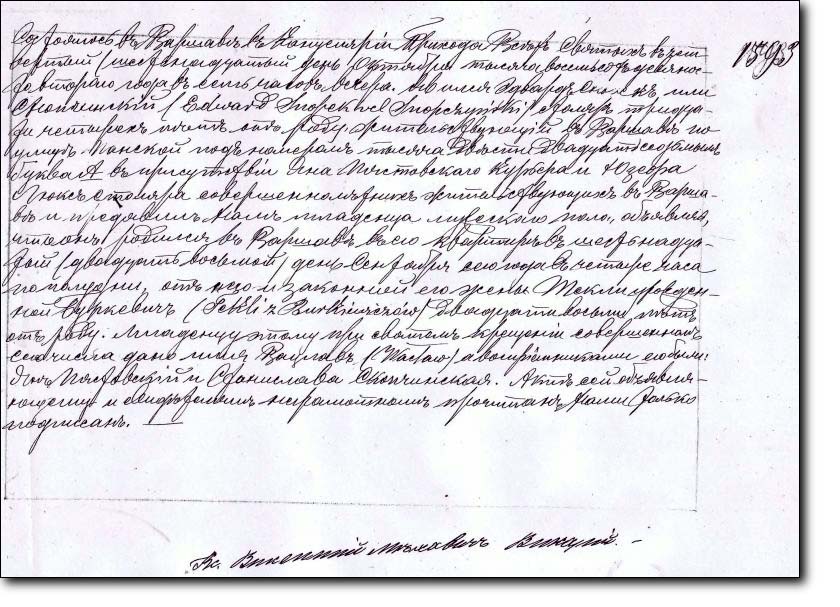 1593
Состоялось въ Варшавѣ въ Канцеляріи Прихода Всѣхъ Святыхъ въ чет-
вертый (шестнадцатый) день Октября тысяча восемьсотъ девяно-
сто втораго года въ семь часовъ вечера. Явился Эдвардъ или
(Edward столяръ тридца-
ти четырехъ лѣтъ отъ роду жительствующій въ Варшавѣ по
улицѣ Панской подъ номеромъ тысяча двѣсти двадцать седьмымъ
буква А въ присутствіи Яна Курьера и Юзефа
столяра совершеннолѣтнихъ жительствующихъ въ Варша-
вѣ и предъявилъ Намъ младенца мужескаго пола, объявляя,
что онъ родился въ Варшавѣ въ его квартирѣ въ шестьнадца-
тый (двадцать восьмой) день Сентября сего года въ четыре часа
пополудни, отъ него и законной его жены Текли урожден-
ной Буркевичъ (Tekli z двадцати восьми лѣтъ
отъ роду. Младенцу этому при святомъ крещеніи совершенномъ
сего числа дано имя Вацлавъ (Wacław) а воспріемниками его были:
Янъ и Станислава Скопчинская. Актъ сей объявля-
ющему и свидѣтелямъ неграмотнымъ прочитанъ Нами только
подписанъ.
Кс. Викентій Викарій. -